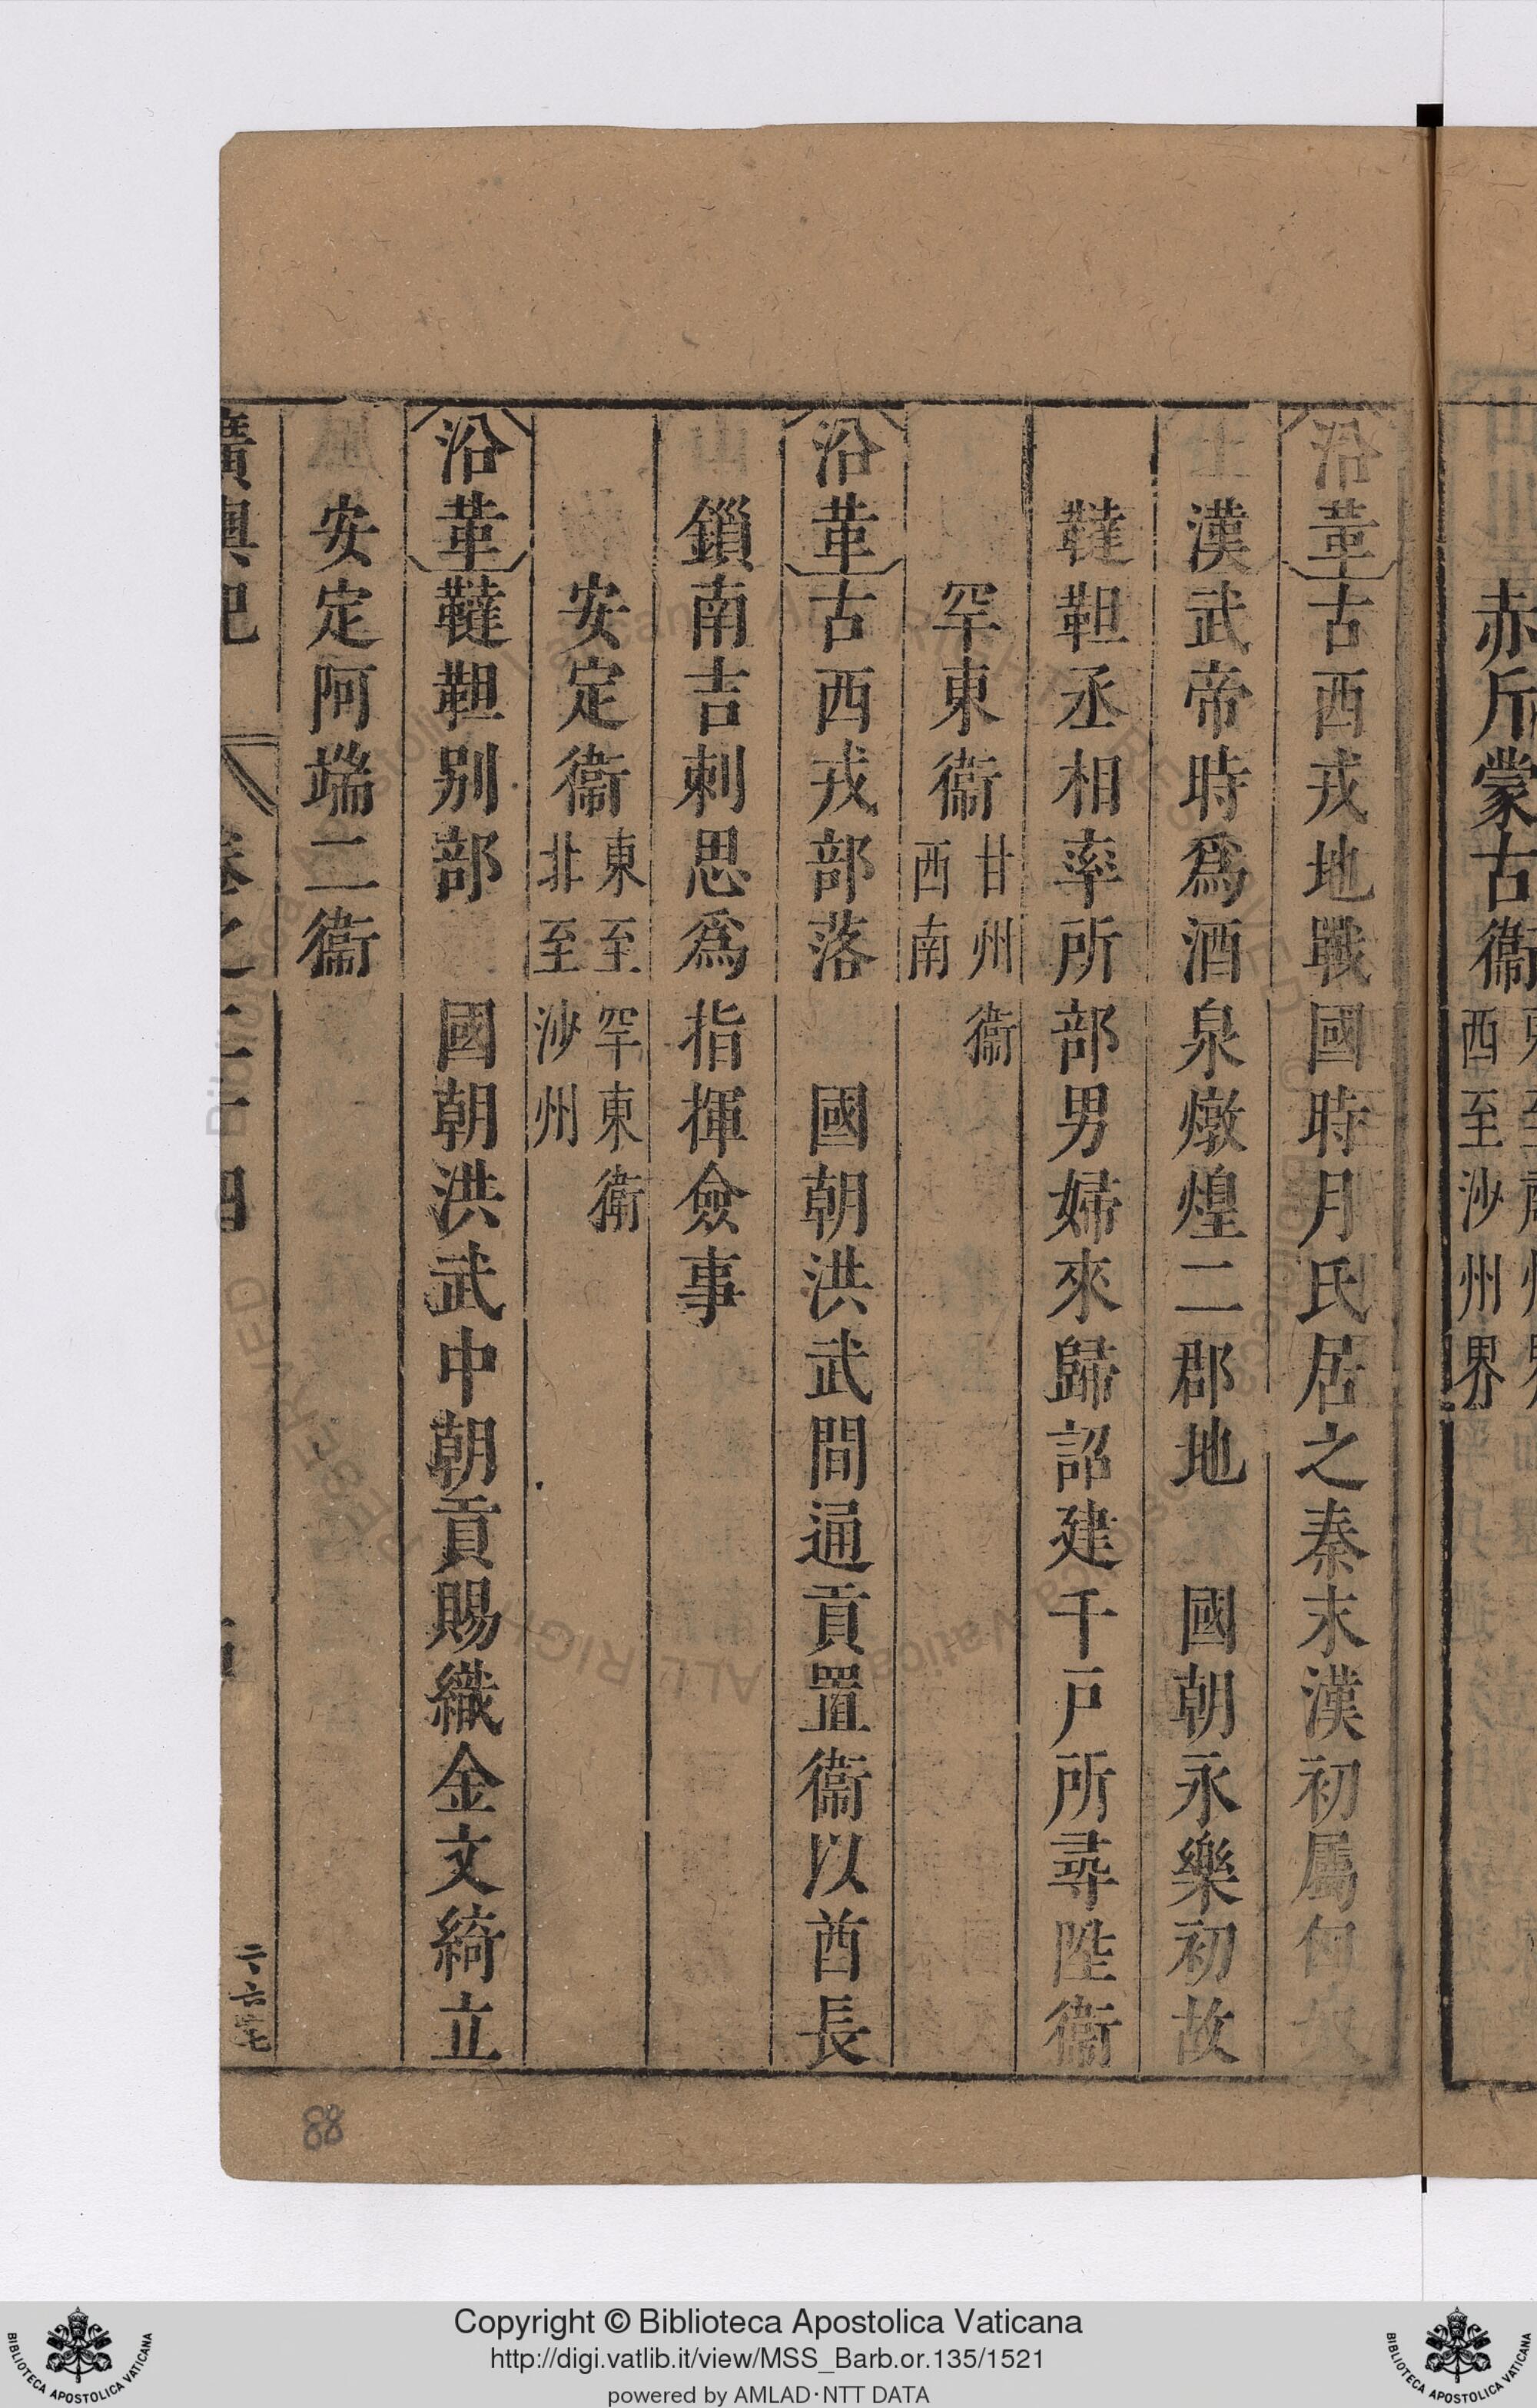 赤斤蒙古衞
西至沙州界
沿革古西戎地戰國時月氏居之秦末漢初屬匈奴
漢武帝時爲酒泉燉煌二郡地 國朝永樂初故
韃靼丞相率所部男婦來歸詔建千戸所尋陞衞
罕東衞甘州衞西南
沿革古西戎部落 國朝洪武間通貢置衞以酋長
鎻南吉剌思爲指揮僉事
安定衞東至罕東衞北至沙州
沿革韃靼别部 國朝洪武中朝貢賜織金文綺立
安定阿端二衞
廣輿記 卷之二十四
88
Copyright © Biblioteca Apostolica Vaticana
http://digi.vatlib.it/view/MSS_Barb.or.135/1521
powered by AMLAD·NTT DATA
BIBLIOTECA APOSTOLICA VATICANA
BIBLIOTECA APOSTOLICA VATICANA